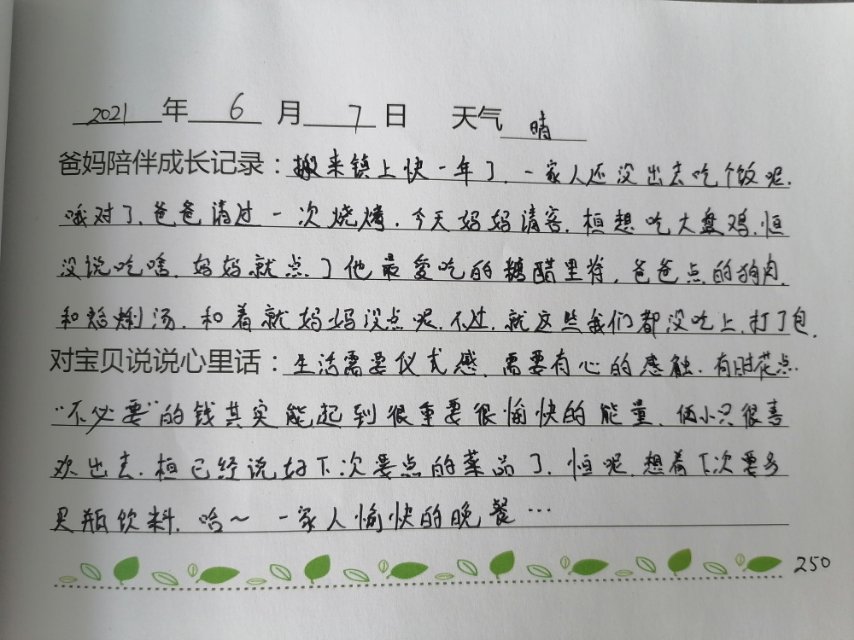 2021 年 6 月 7 日 天气 晴
爸妈陪伴成长记录：搬来镇上快一年了，一家人还没出去吃个饭呢，
哦对了，爸爸请过一次烧烤，今天妈妈请客，桓想吃大盘鸡，恒
没说吃啥，妈妈就点了他最爱吃的糖醋里脊，爸爸点的狗肉，
和蛤蜊汤，和着就妈妈没点呢，不过，就这些我们都没吃上，打了包，
对宝贝说说心里话：生活需要仪式感，需要有心的感触，有时花点
“不必要”的钱其实能起到很重要很愉快的能量，俩小只很喜
欢出去，桓已经说好下次要点的菜品了，恒呢，想着下次要多
买瓶饮料，哈～ 一家人愉快的晚餐…
250